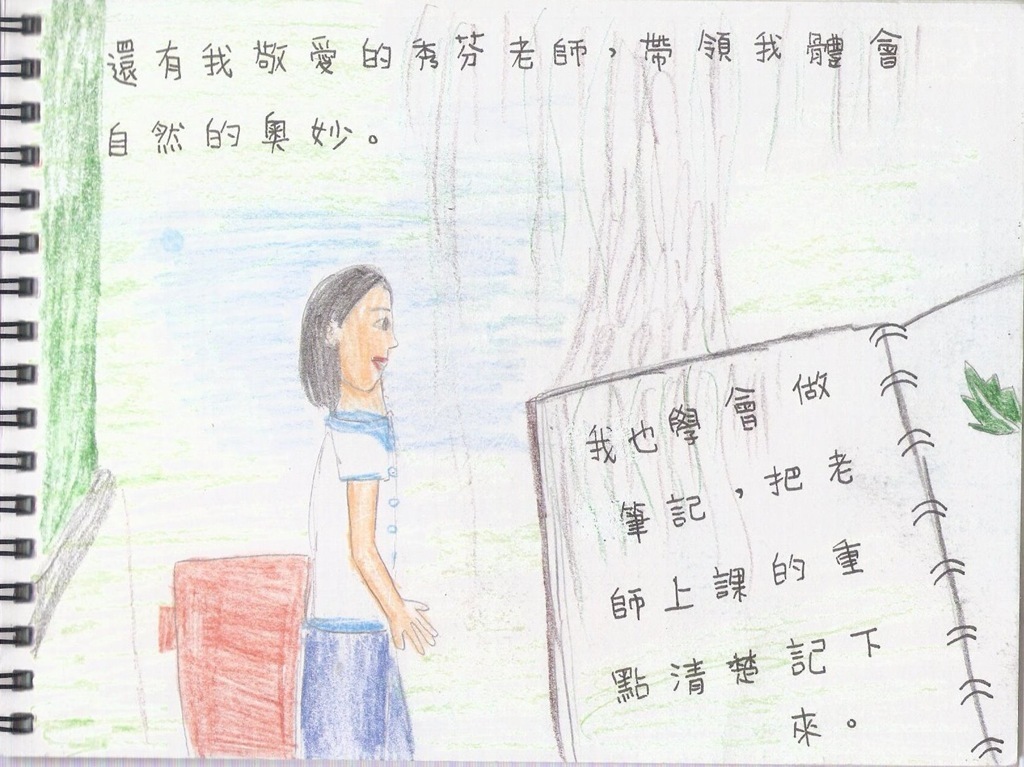 還有我敬愛的秀芬老師，帶領我體會
自然的奧妙。
我也學會做
筆記，把老
師上課的重
點清楚記下
來。